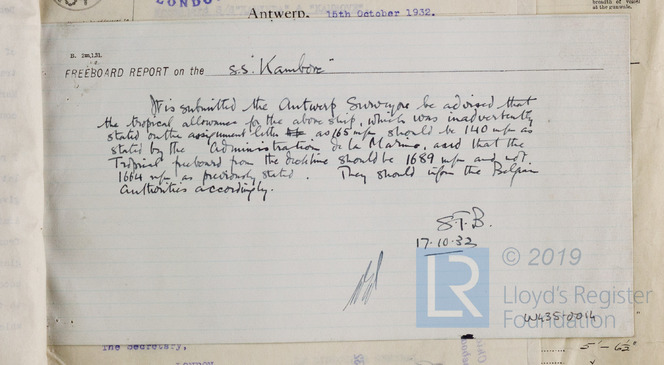 LONDO
Antwerp, 15th October 1932.
breadth of vessel
at the gunwale.
FREEBOARD REPORT on the S.S. "Kambove"
It is submitted the Antwerp Surveyors be advised that
the tropical allowance for the above ship, which was inadvertently
stated on the assignment letter as 165 m/m, should be 140 m/m as
stated by the Administration de la Marine, and that the
Tropical freeboard from the deckline should be 1689 m/m and not
1664 m/m as previously stated. They should inform the Belgian
Authorities accordingly.
S.T.B.
17.10.32
LR
© 2019
Lloyd's Register
Foundation
W435-0014
The Secretary,
LONDON